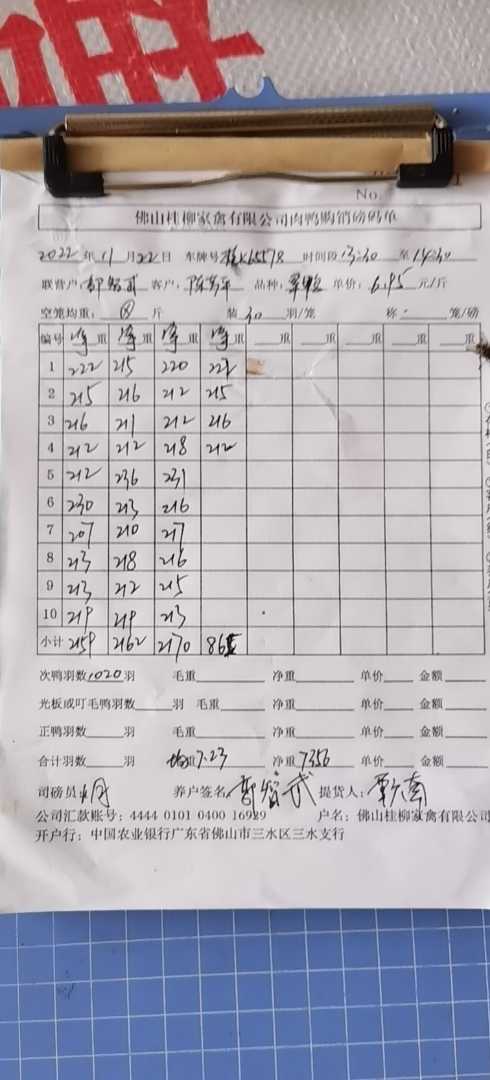 No.
佛山桂柳家禽有限公司肉鸭购销磅码单
2022年11月22日 车牌号 6578 时间段13:30至14:30
联营户: 客户: 品种: 单价:6.95元/斤
空笼均重:⑧斤 装30羽/笼 称 笼/磅
编号 净重 净重 净重 净重 重 重 重 重 重
1 222 215 220 221
2 215 216 212 215
3 216 211 212 216
4 212 212 218 212
5 212 236 231
6 230 213 216
7 207 210 217
8 213 218 216
9 213 212 215
10 219 219 213
小计 2159 2162 2170
次鸭羽数1020羽 毛重 净重 单价 金额
光板或叮毛鸭羽数 羽 毛重 净重 单价 金额
正鸭羽数 羽 毛重 净重 单价 金额
合计羽数 羽 均重7.23 净重7356 单价 金额
司磅员 养户签名: 提货人:
公司汇款账号: 4444 0101 0400 16929 户名: 佛山桂柳家禽有限公司
开户行: 中国农业银行广东省佛山市三水区三水支行